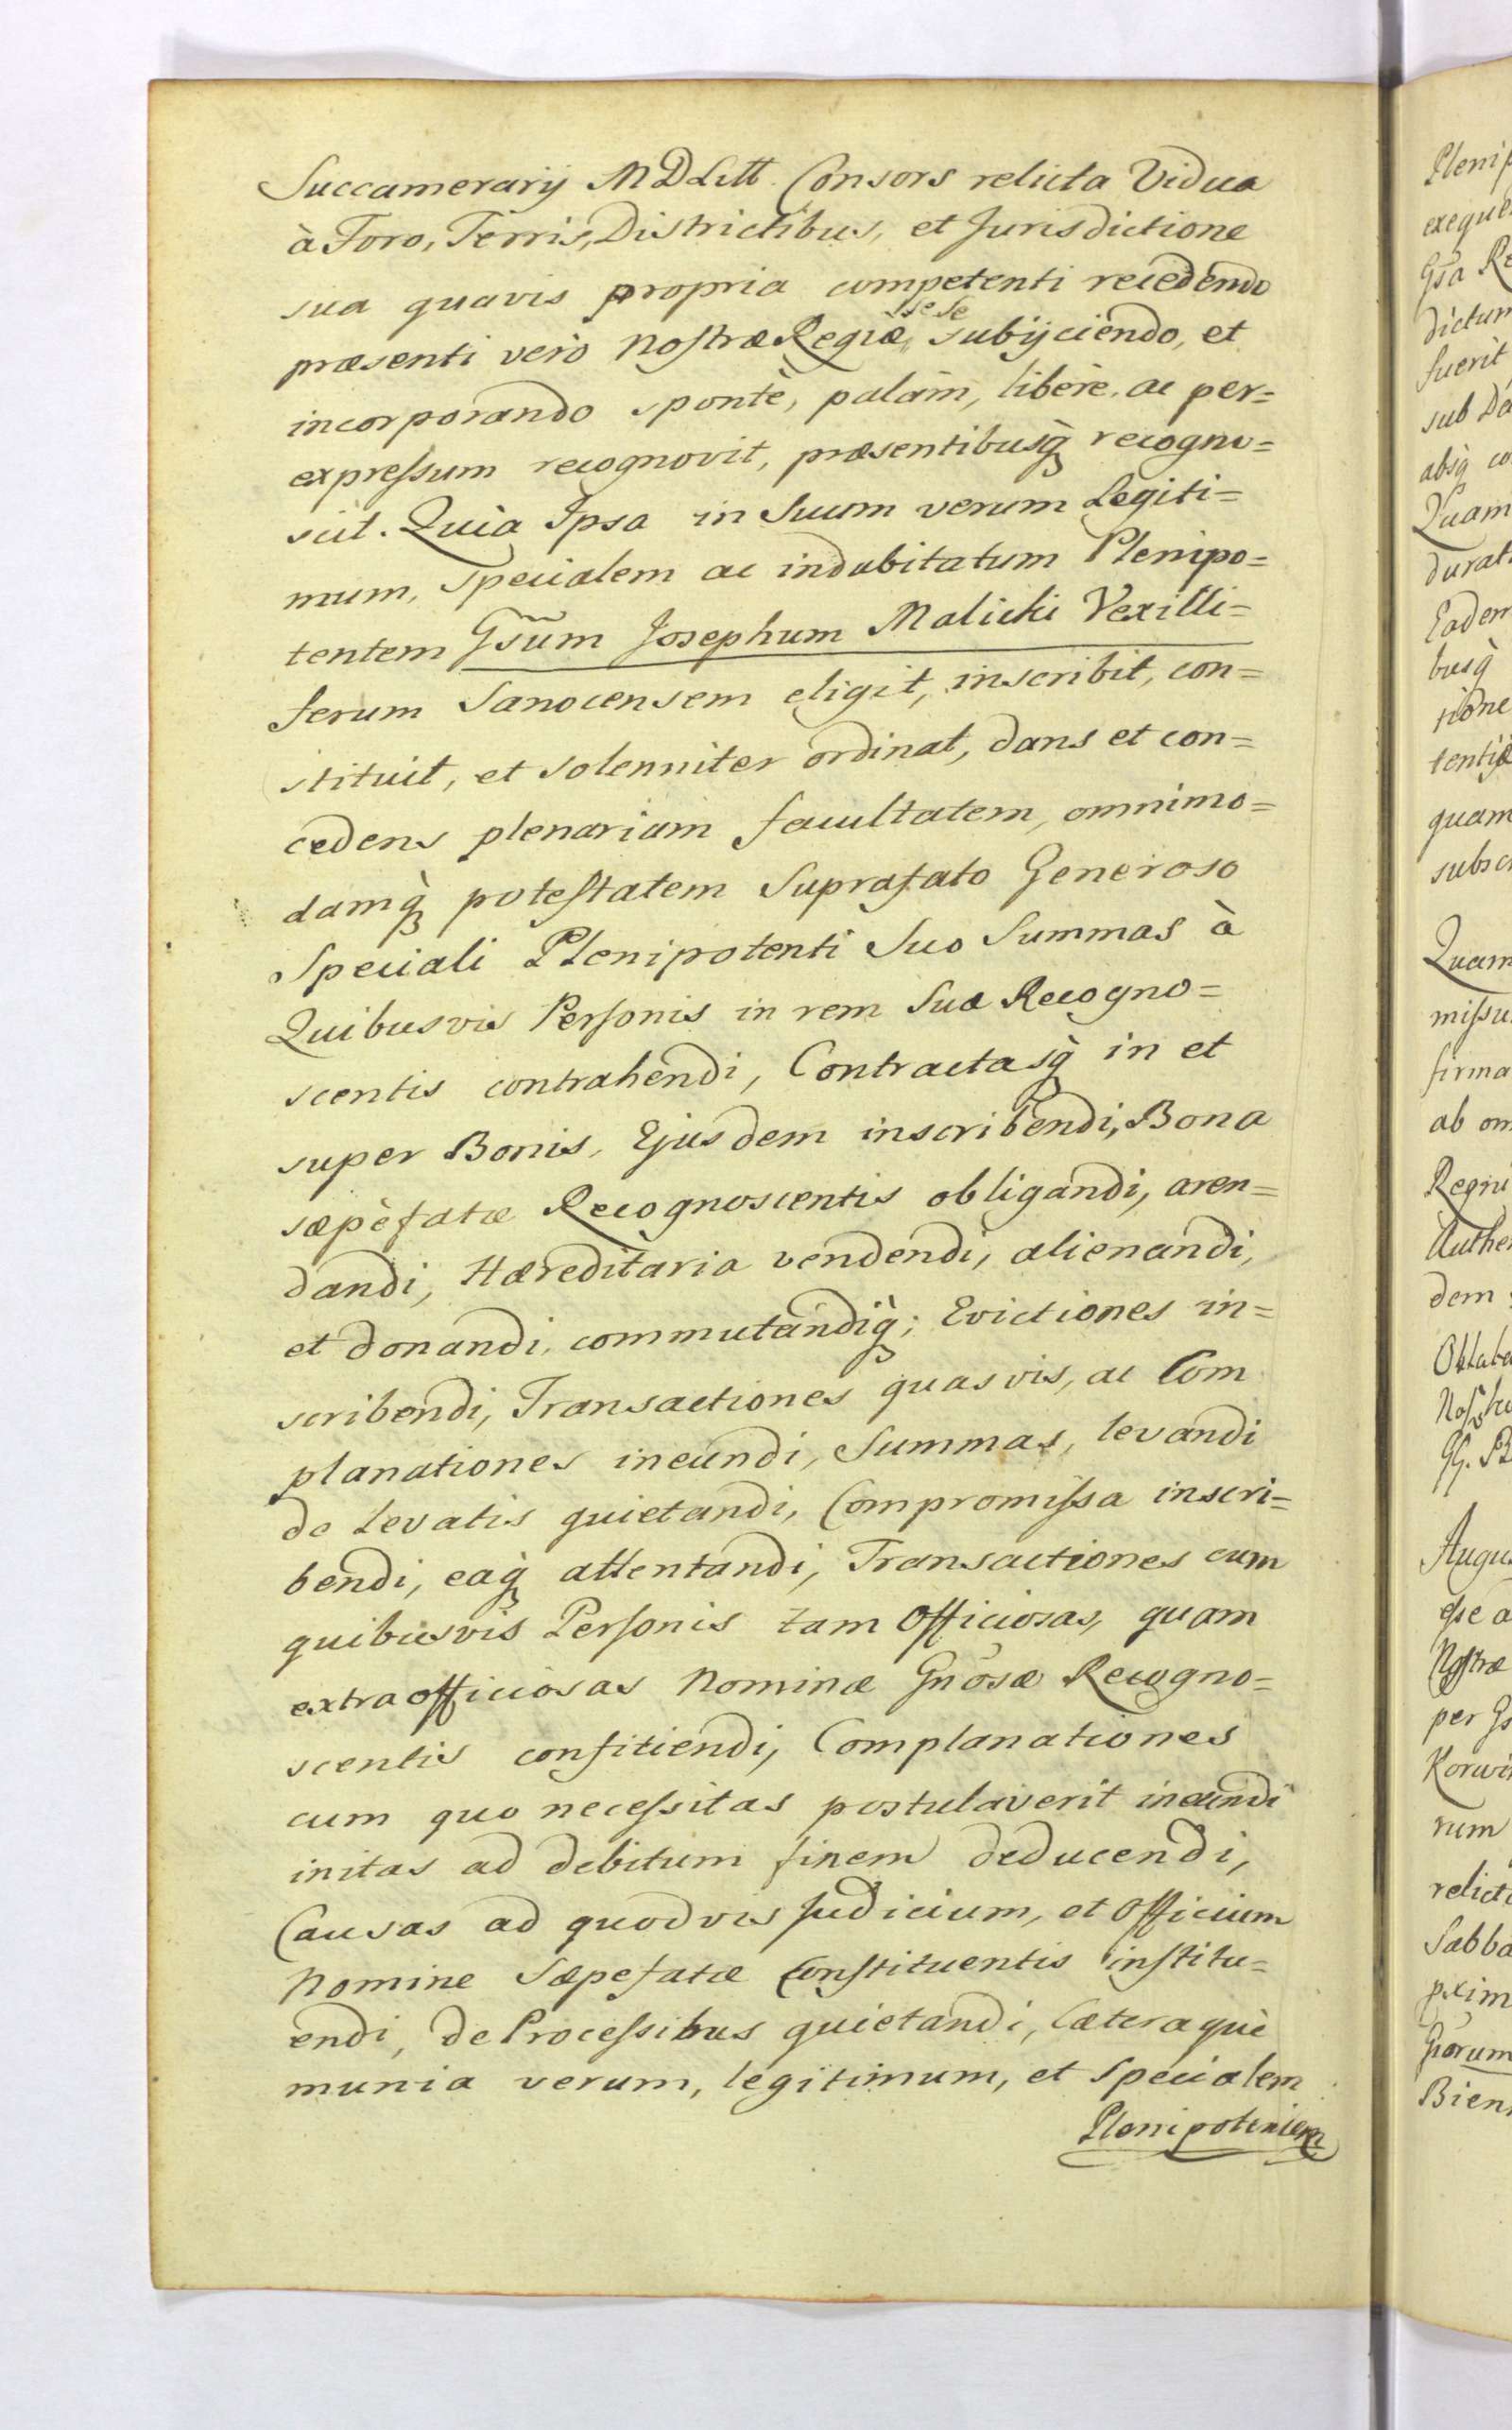 Succamerarij MDLitt. Consors relicta Vidua
à Foro, Terris, Districtibus, et Jurisdictione
sua quavis propria competenti recedendo
præsenti verò Nostræ Regiæ sese subijciendo, et
incorporando spontè, palàm, liberè, ac per=
expressum recognovit, præsentibusq̀ recogno=
scit. Quia Ipsa in Suum verum Legiti=
mum, Specialem ac indubitatum Plenipo=
tentem Gsũm Josephum Malicki Vexilli=
ferum Sanocensem eligit, inscribit, con=
stituit, et solenniter ordinat, dans et con=
cedens plenariam facultatem, omnimo=
damq̀ potestatem Suprafato Generoso
Speciali Plenipotenti Suo Summas à
Quibusvis Personis in rem Suæ Recogno=
scentis contrahendi, Contractasq̀ in et
super Bonis, Ejusdem inscribendi, Bona
sæpèfatæ Recognoscentis obligandi, aren=
dandi, Hæreditaria vendendi, alienandi,
et donandi, commutandiq̀; Evictiones in=
scribendi, Transactiones quasvis, ac Com
planationes ineundi, Summas, levandi
de Levatis quietandi, Compromissa inscri=
bendi, eaq̀ attentandi, Transactiones cum
quibusvis Personis tam Officiosas, quam
extraofficiosas Nominæ Gnosæ Recogno=
scentis conficiendi, Complanationes
cum quo necessitas postulaverit ineundi
initas ad debitum finem deducendi,
Causas ad quodvis Judicium, et Officium
Nomine Sæpefatæ Constituentis institu=
endi, de Processibus quietandi, Cæteraquè
munia verum, legitimum, et Specialem
Plenipotentem